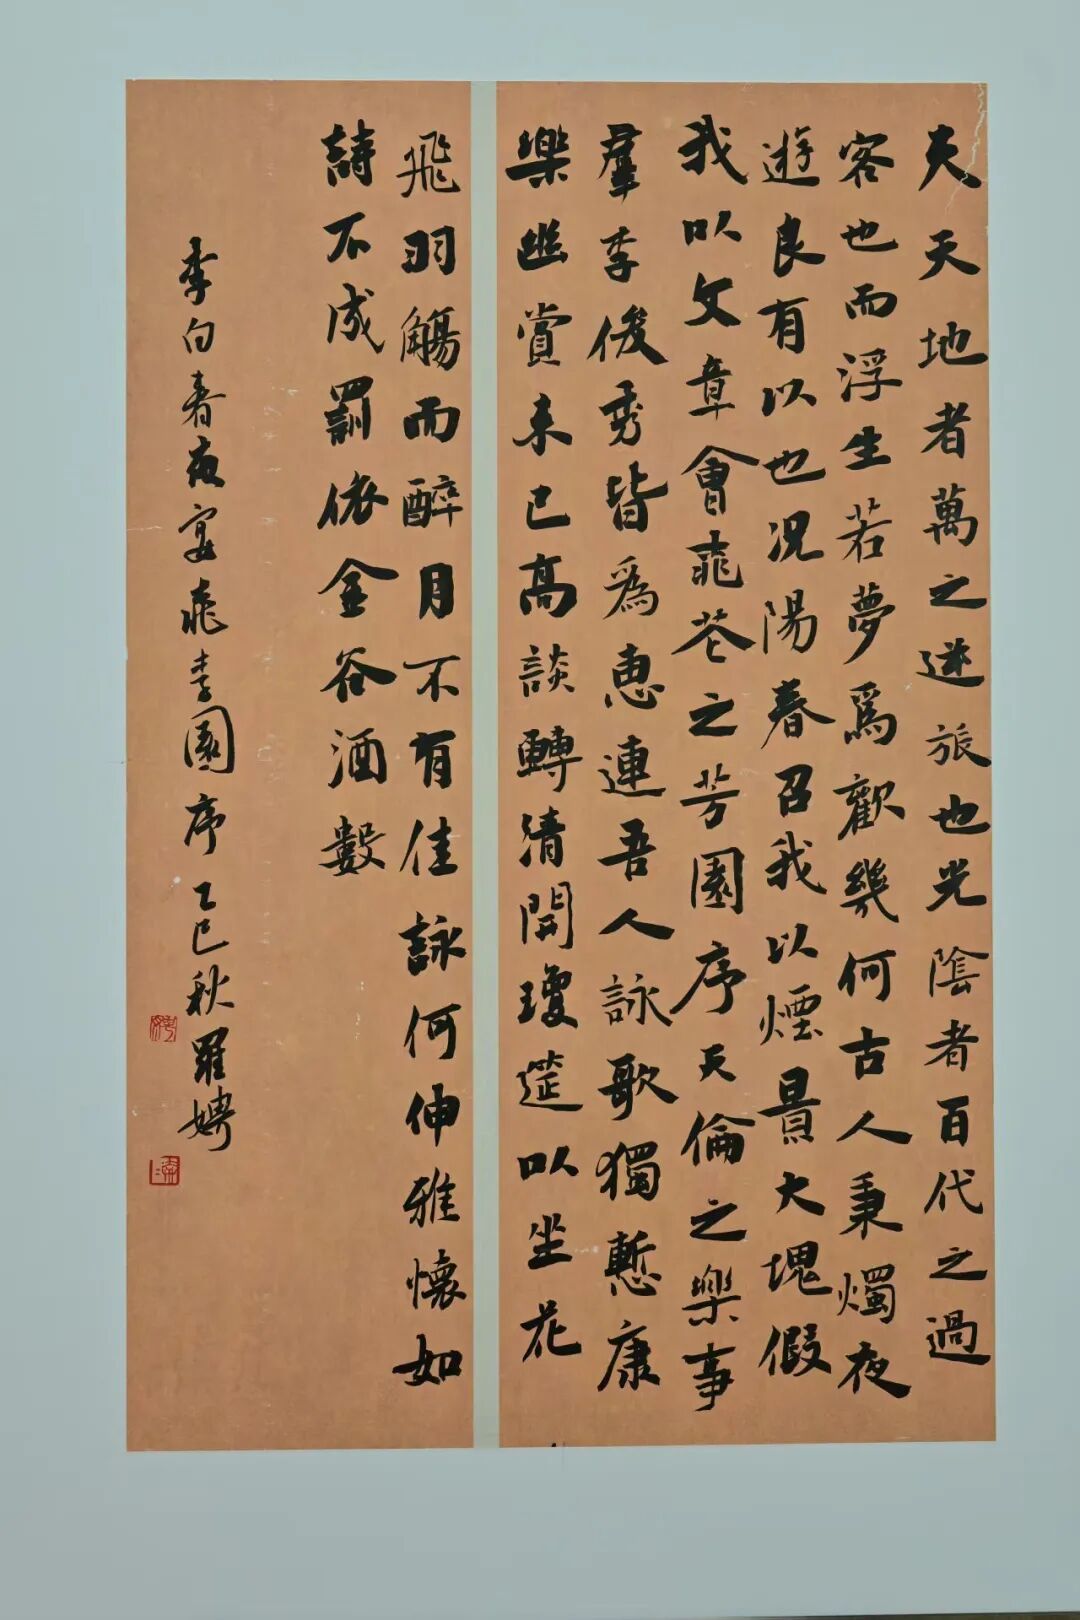 夫天地者萬之逆旅也光陰者百代之過
客也而浮生若夢爲歡幾何古人秉燭夜
遊良有以也況陽春召我以煙景大塊假
我以文章會桃花之芳園序天倫之樂事
羣季俊秀皆爲惠連吾人詠歌獨慙康
樂幽賞未已高談轉清開瓊筵以坐花
飛羽觴而醉月不有佳詠何伸雅懷如
詩不成罰依金谷酒數
李白春夜宴桃李園序乙巳秋羅娉